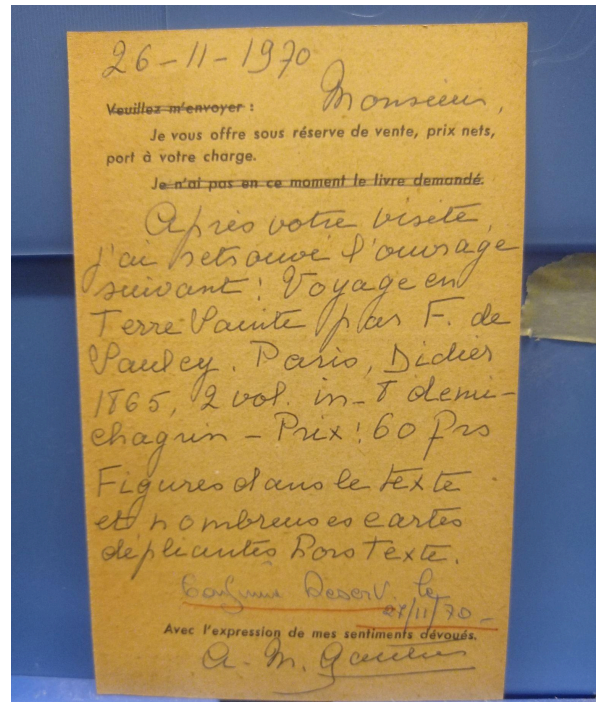 26-11-1970
Monsieur,
Veuillez m'envoyer :
Je vous offre sous réserve de vente, prix nets,
port à votre charge.
Je n'ai pas en ce moment le livre demandé.
Après votre visite,
j'ai retrouvé l'ouvrage
suivant : Voyage en
Terre Sainte par F. de
Saulcy. Paris, Didier
1865, 2 vol. in-8 demi-
chagrin - Prix : 60 frs
Figures dans le texte
et nombreuses cartes
dépliantes hors texte.
le
27/11/70 -
Avec l'expression de mes sentiments dévoués.
A. M.